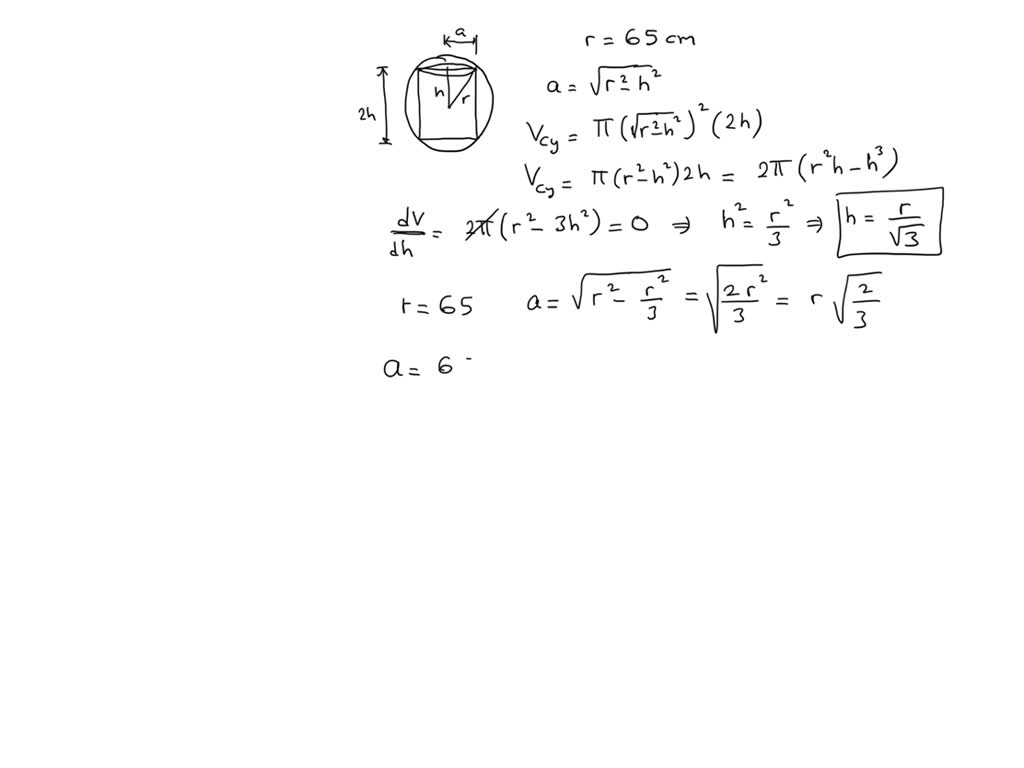 a
r = 65 cm
h
r
2h
a = √(r² - h²)
V_cy = π (√(r² - h²))² (2h)
V_cy = π (r² - h²) 2h = 2π (r²h - h³)
dV/dh = 2π (r² - 3h²) = 0 ⇒ h² = r²/3 ⇒ h = r/√3
r = 65 a = √(r² - r²/3) = √(2r²/3) = r √(2/3)
a = 6